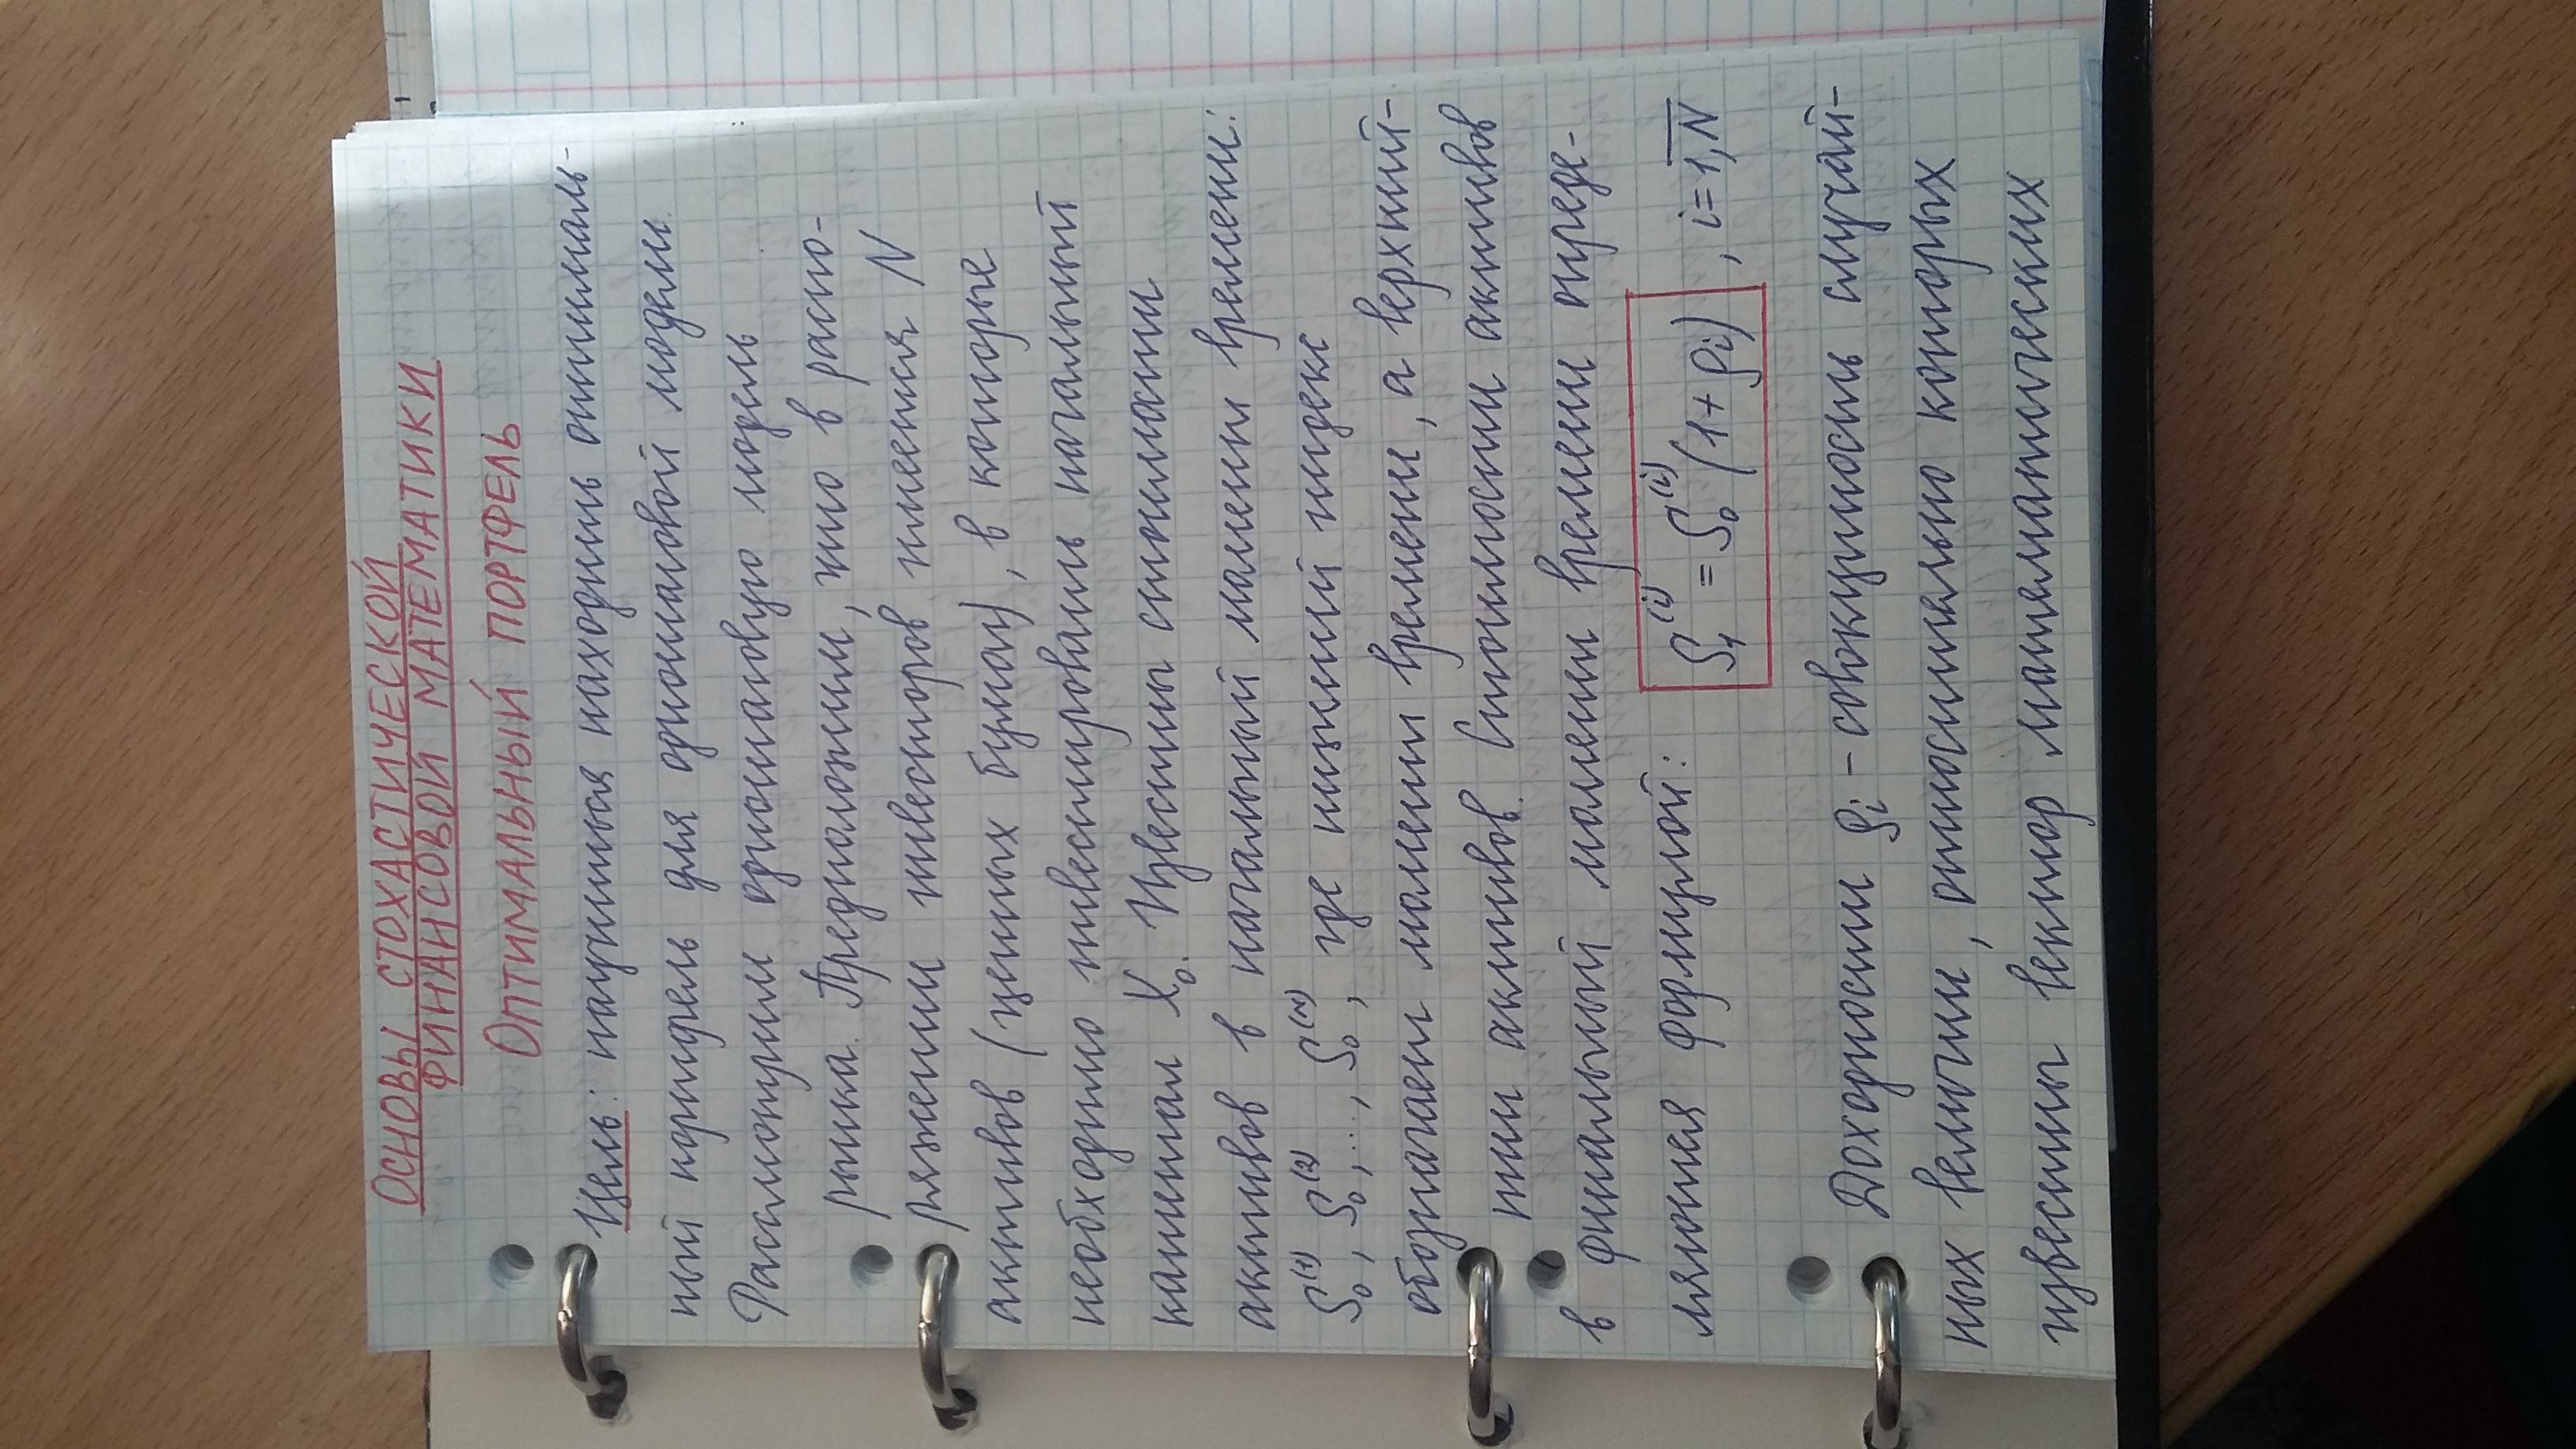 ОСНОВЫ СТОХАСТИЧЕСКОЙ
ФИНАНСОВОЙ МАТЕМАТИКИ
ОПТИМАЛЬНЫЙ ПОРТФЕЛЬ
Цель: научиться находить оптималь-
ный портфель для одношаговой модели.
Рассмотрим одношаговую модель
рынка. Предположим, что в распо-
ряжении инвесторов имеется N
активов (ценных бумаг), в которые
необходимо инвестировать начальный
капитал X₀. Известны стоимости
активов в начальный момент времени:
S₀⁽¹⁾, S₀⁽²⁾, ..., S₀⁽ᴺ⁾, где нижний индекс
обозначает момент времени, а верхний-
тип активов. Стоимости активов
в финальный момент времени опреде-
ляются формулой: S₁⁽ⁱ⁾ = S₀⁽ⁱ⁾ (1+ρᵢ) , i=1,N̅
Доходности ρᵢ - совокупность случай-
ных величин, относительно которых
известны вектор математических